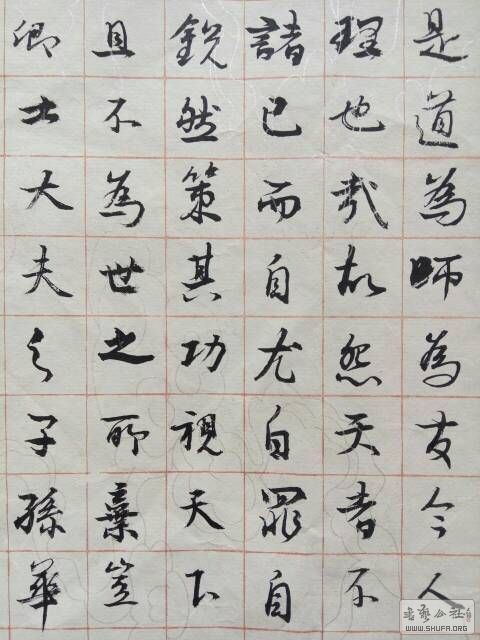 是道為師為友今人
理也哉故怨天者不
諸已而自尤自罪自
銳然策其功視天下
且不為世之所棄豈
卿士大夫之子孫華
书艺公社
WWW.SHUFA.ORG